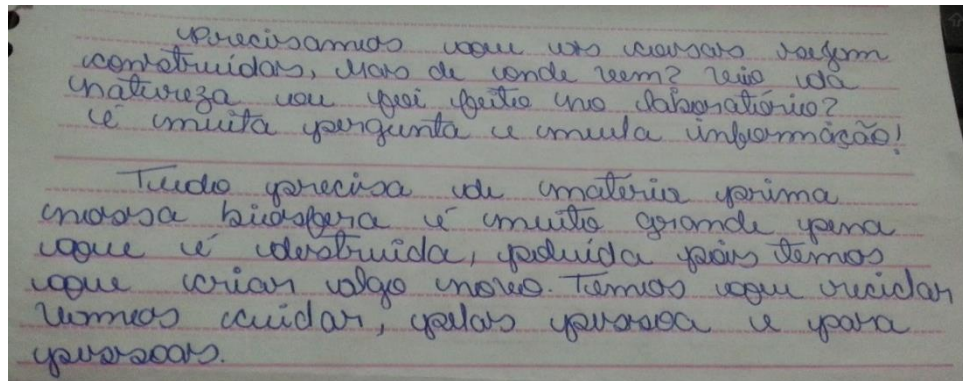 Precisamos que as coisas sejam
construidas, Mas de onde vem? veio da
natureza ou foi feito no laboratório?
é muita pergunta e muita informação!
Tudo precisa de matéria prima
nossa biosfera é muito grande pena
que é destruída, poluída pois temos
que criar algo novo. Temos que reciclar
Vamos cuidar, pelas pessoa e para
pessoas.